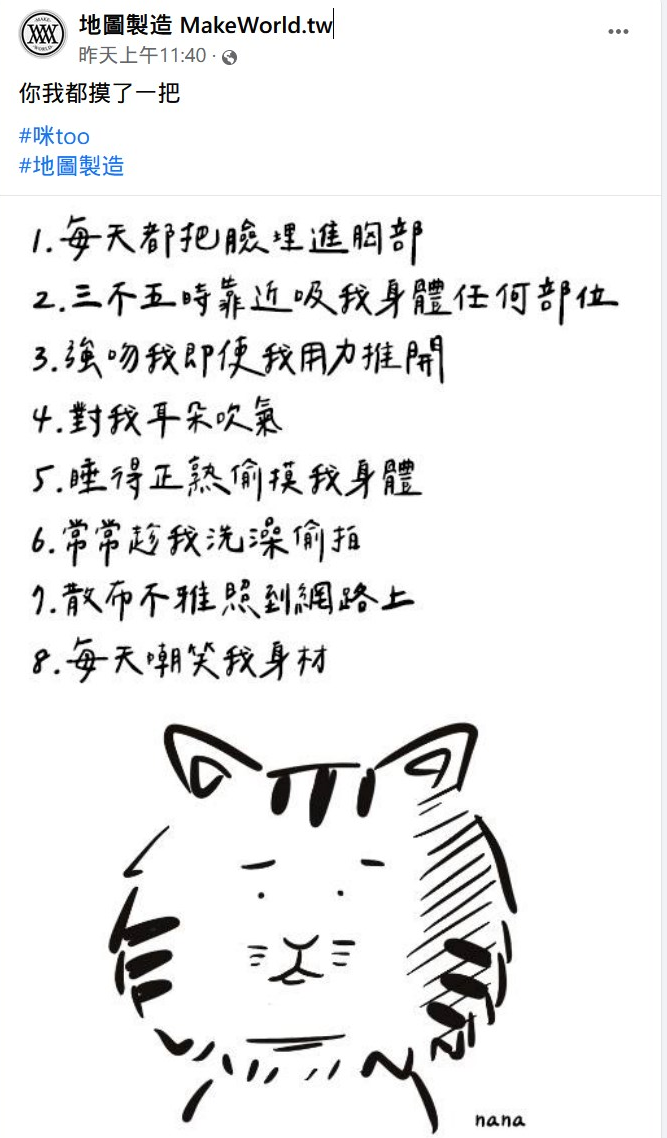 地圖製造 MakeWorld.tw
昨天上午11:40 ·
你我都摸了一把
#咪too
#地圖製造
1.每天都把臉埋進胸部
2.三不五時靠近吸我身體任何部位
3.強吻我即使我用力推開
4.對我耳朵吹氣
5.睡得正熟偷摸我身體
6.常常趁我洗澡偷拍
7.散布不雅照到網路上
8.每天嘲笑我身材
nana